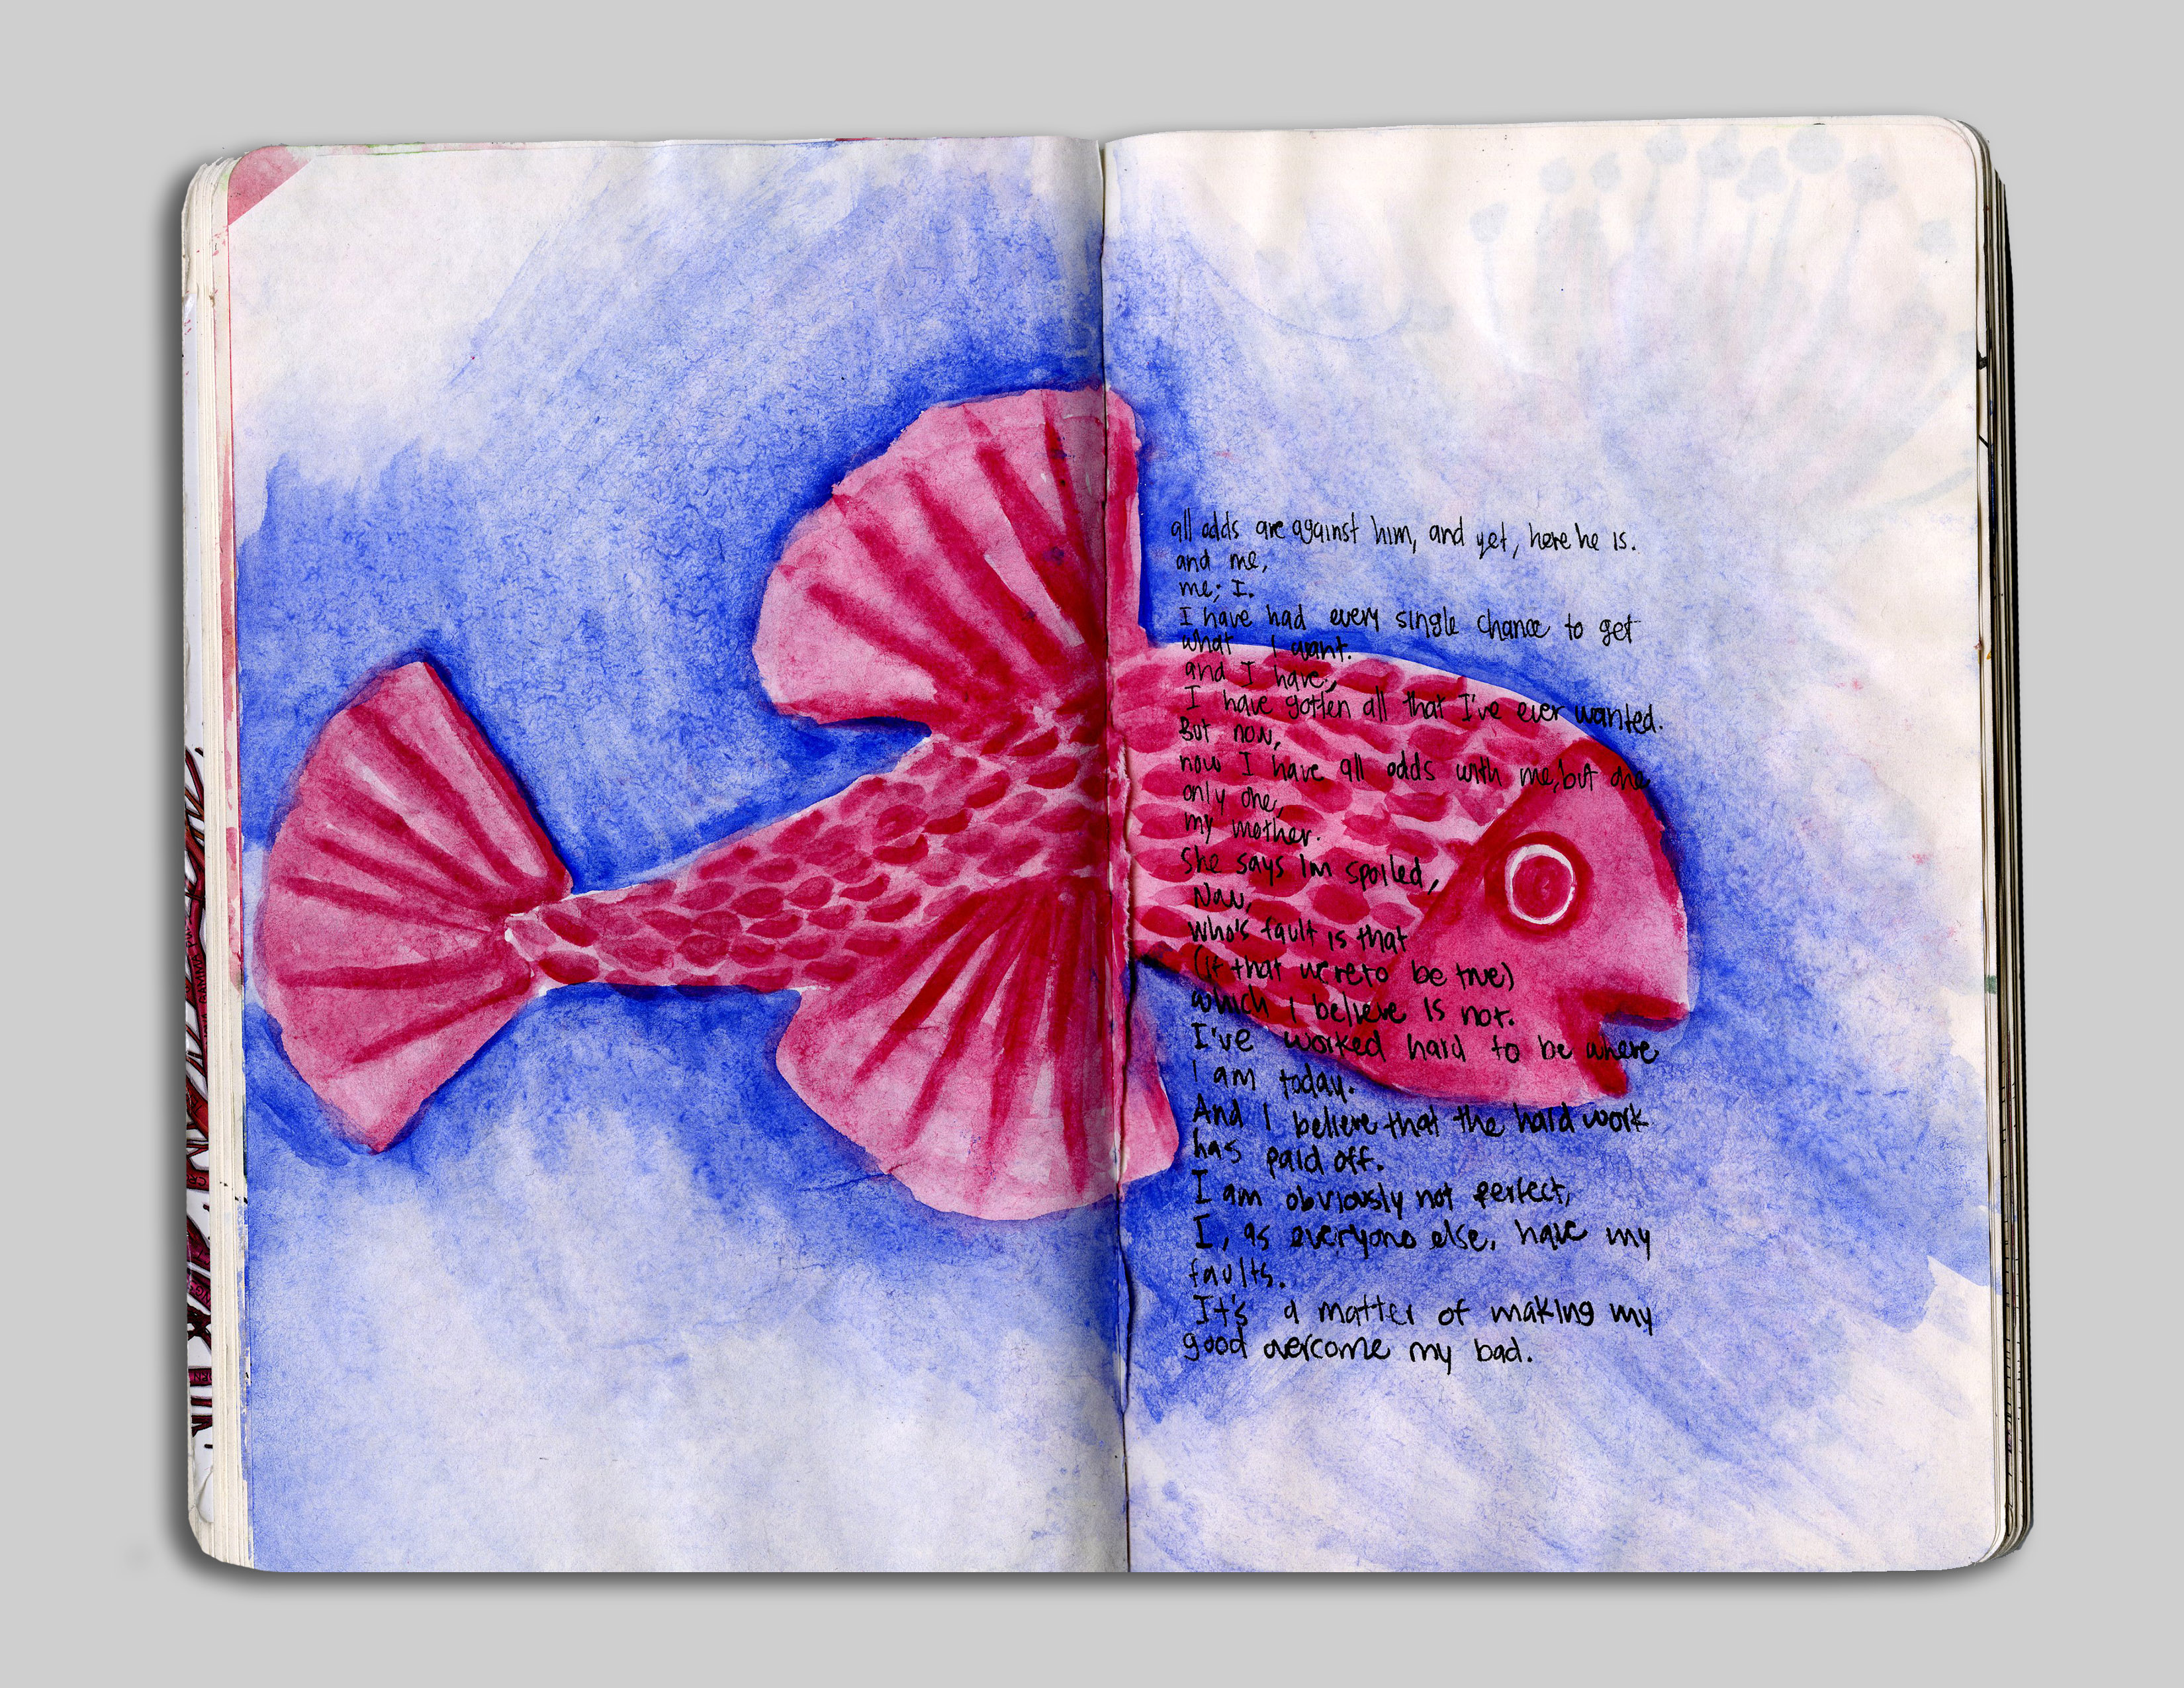 all odds are against him, and yet, here he is.
and me,
me; I.
I have had every single chance to get
what I want.
and I have,
I have gotten all that I've ever wanted.
But now,
now I have all odds with me, but one
only one,
my mother.
she says Im spoiled,
Now,
who's fault is that
(if that were to be true)
which I believe is not.
I've worked hard to be where
I am today.
And I believe that the hard work
has paid off.
I am obviously not perfect,
I, as everyone else, have my
faults.
It's a matter of making my
good overcome my bad.